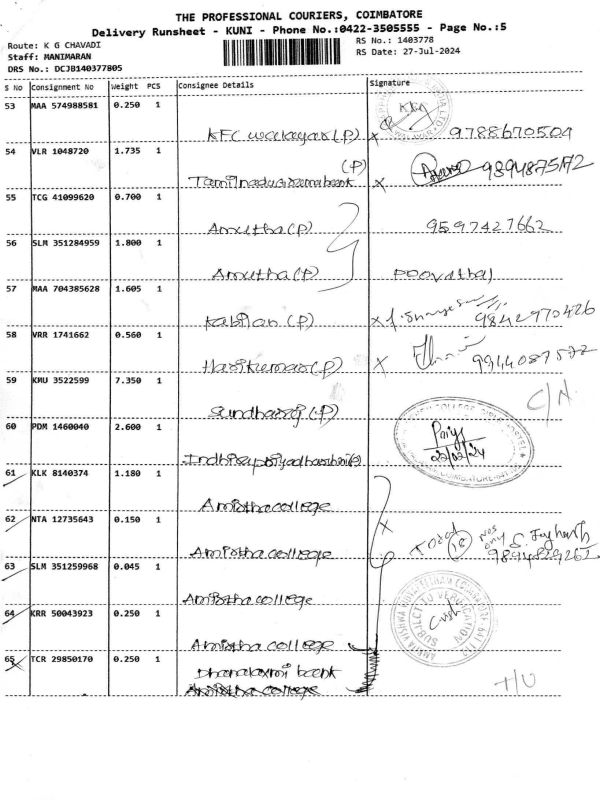 THE PROFESSIONAL COURIERS, COIMBATORE
Delivery Runsheet - KUNI - Phone No.:0422-3505555 - Page No.:5
Route: K G CHAVADI
RS No.: 1403778
Staff: MANIMARAN
RS Date: 27-Jul-2024
DRS No.: DCJB140377805
S No Consignment No Weight PCS Consignee Details Signature
53 MAA 574988581 0.250 1
KFC walayar (P) x 9788670504
54 VLR 1048720 1.735 1
(P)
Tamilnadu grama bank x 9894875172
55 TCG 41099620 0.700 1
Amutha (P) 9597427662
56 SLM 351284959 1.800 1
Amutha (P) Poovathal
57 MAA 704385628 1.605 1
Kabilan (P) x 9842970426
58 VRR 1741662 0.560 1
Harikumar (P) x 9944087572
59 KMU 3522599 7.350 1
Sundharaj (P) C/N
60 PDM 1460040 2.600 1
Indhirapriyadharshini (P)
61 KLK 8140374 1.180 1
Amirtha college
62 NTA 12735643 0.150 1
Amirtha college x Total 12 Nos only
63 SLM 351259968 0.045 1
Amirtha college
64 KRR 50043923 0.250 1
Amirtha college
SUBJECT TO VERIFICATION
65 TCR 29850170 0.250 1
Dhanalaxmi bank
Amirtha college
T/U